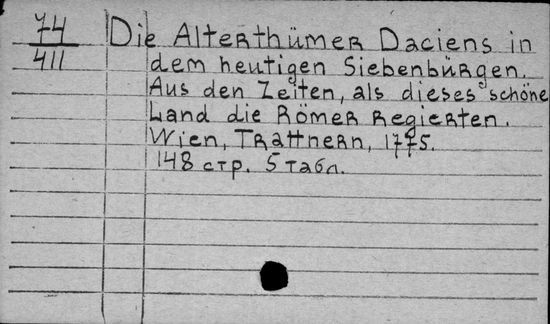 74
411
Die Alterthümer Daciens in
dem heutigen Siebenbürgen.
Aus den Zeiten, als dieses schöne
Land die Römer Regierten.
Wien, Trattnern, 1775.
148 стр. 5 табл.